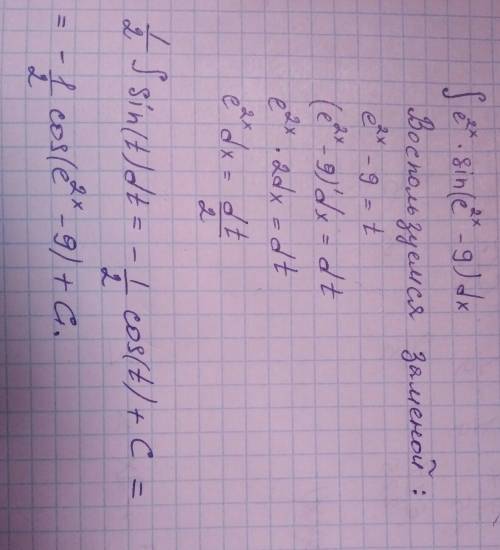 ∫ e^{2x} · sin(e^{2x} - 9) dx
Воспользуемся заменой:
e^{2x} - 9 = t
(e^{2x} - 9)' dx = dt
e^{2x} · 2dx = dt
e^{2x} dx = dt/2
1/2 ∫ sin(t) dt = - 1/2 cos(t) + C =
= - 1/2 cos(e^{2x} - 9) + C.